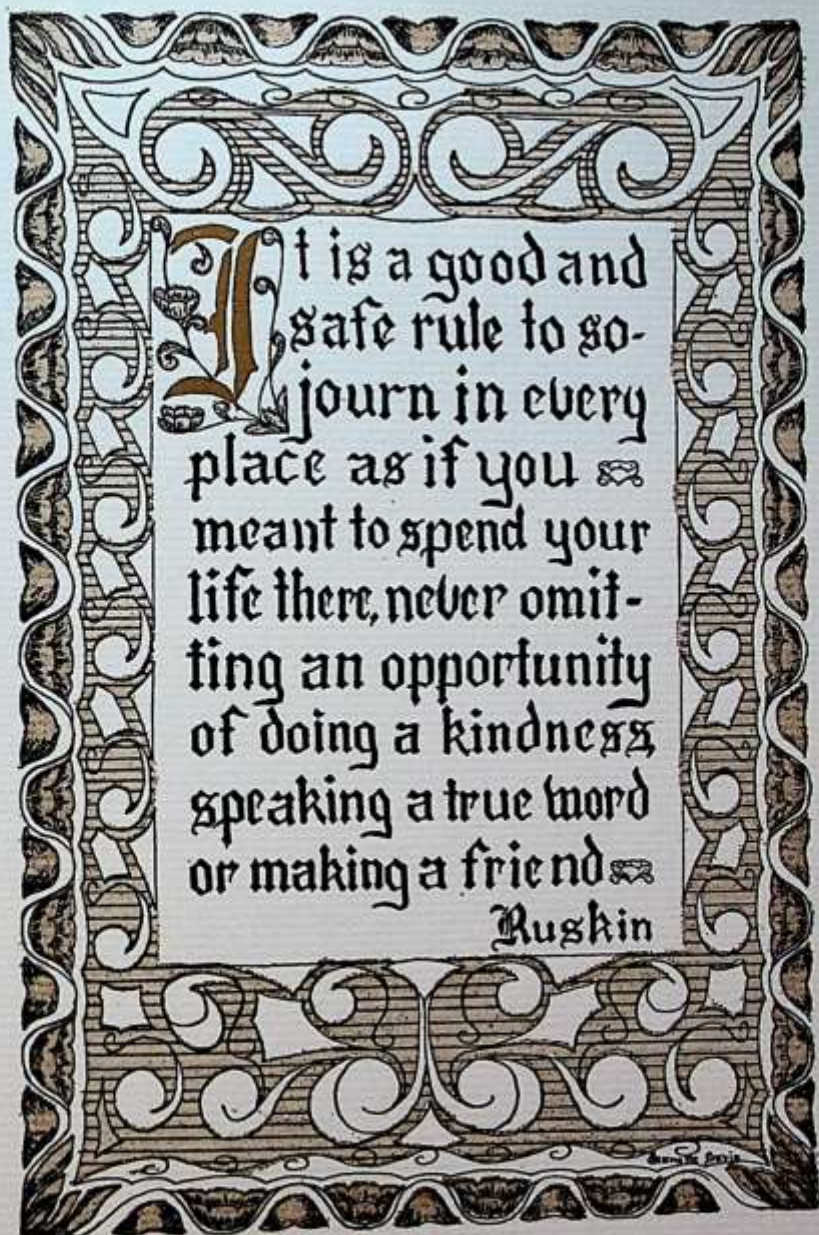 It is a good and
safe rule to so-
journ in every
place as if you
meant to spend your
life there, never omit-
ting an opportunity
of doing a kindness,
speaking a true word
or making a friend
Ruskin